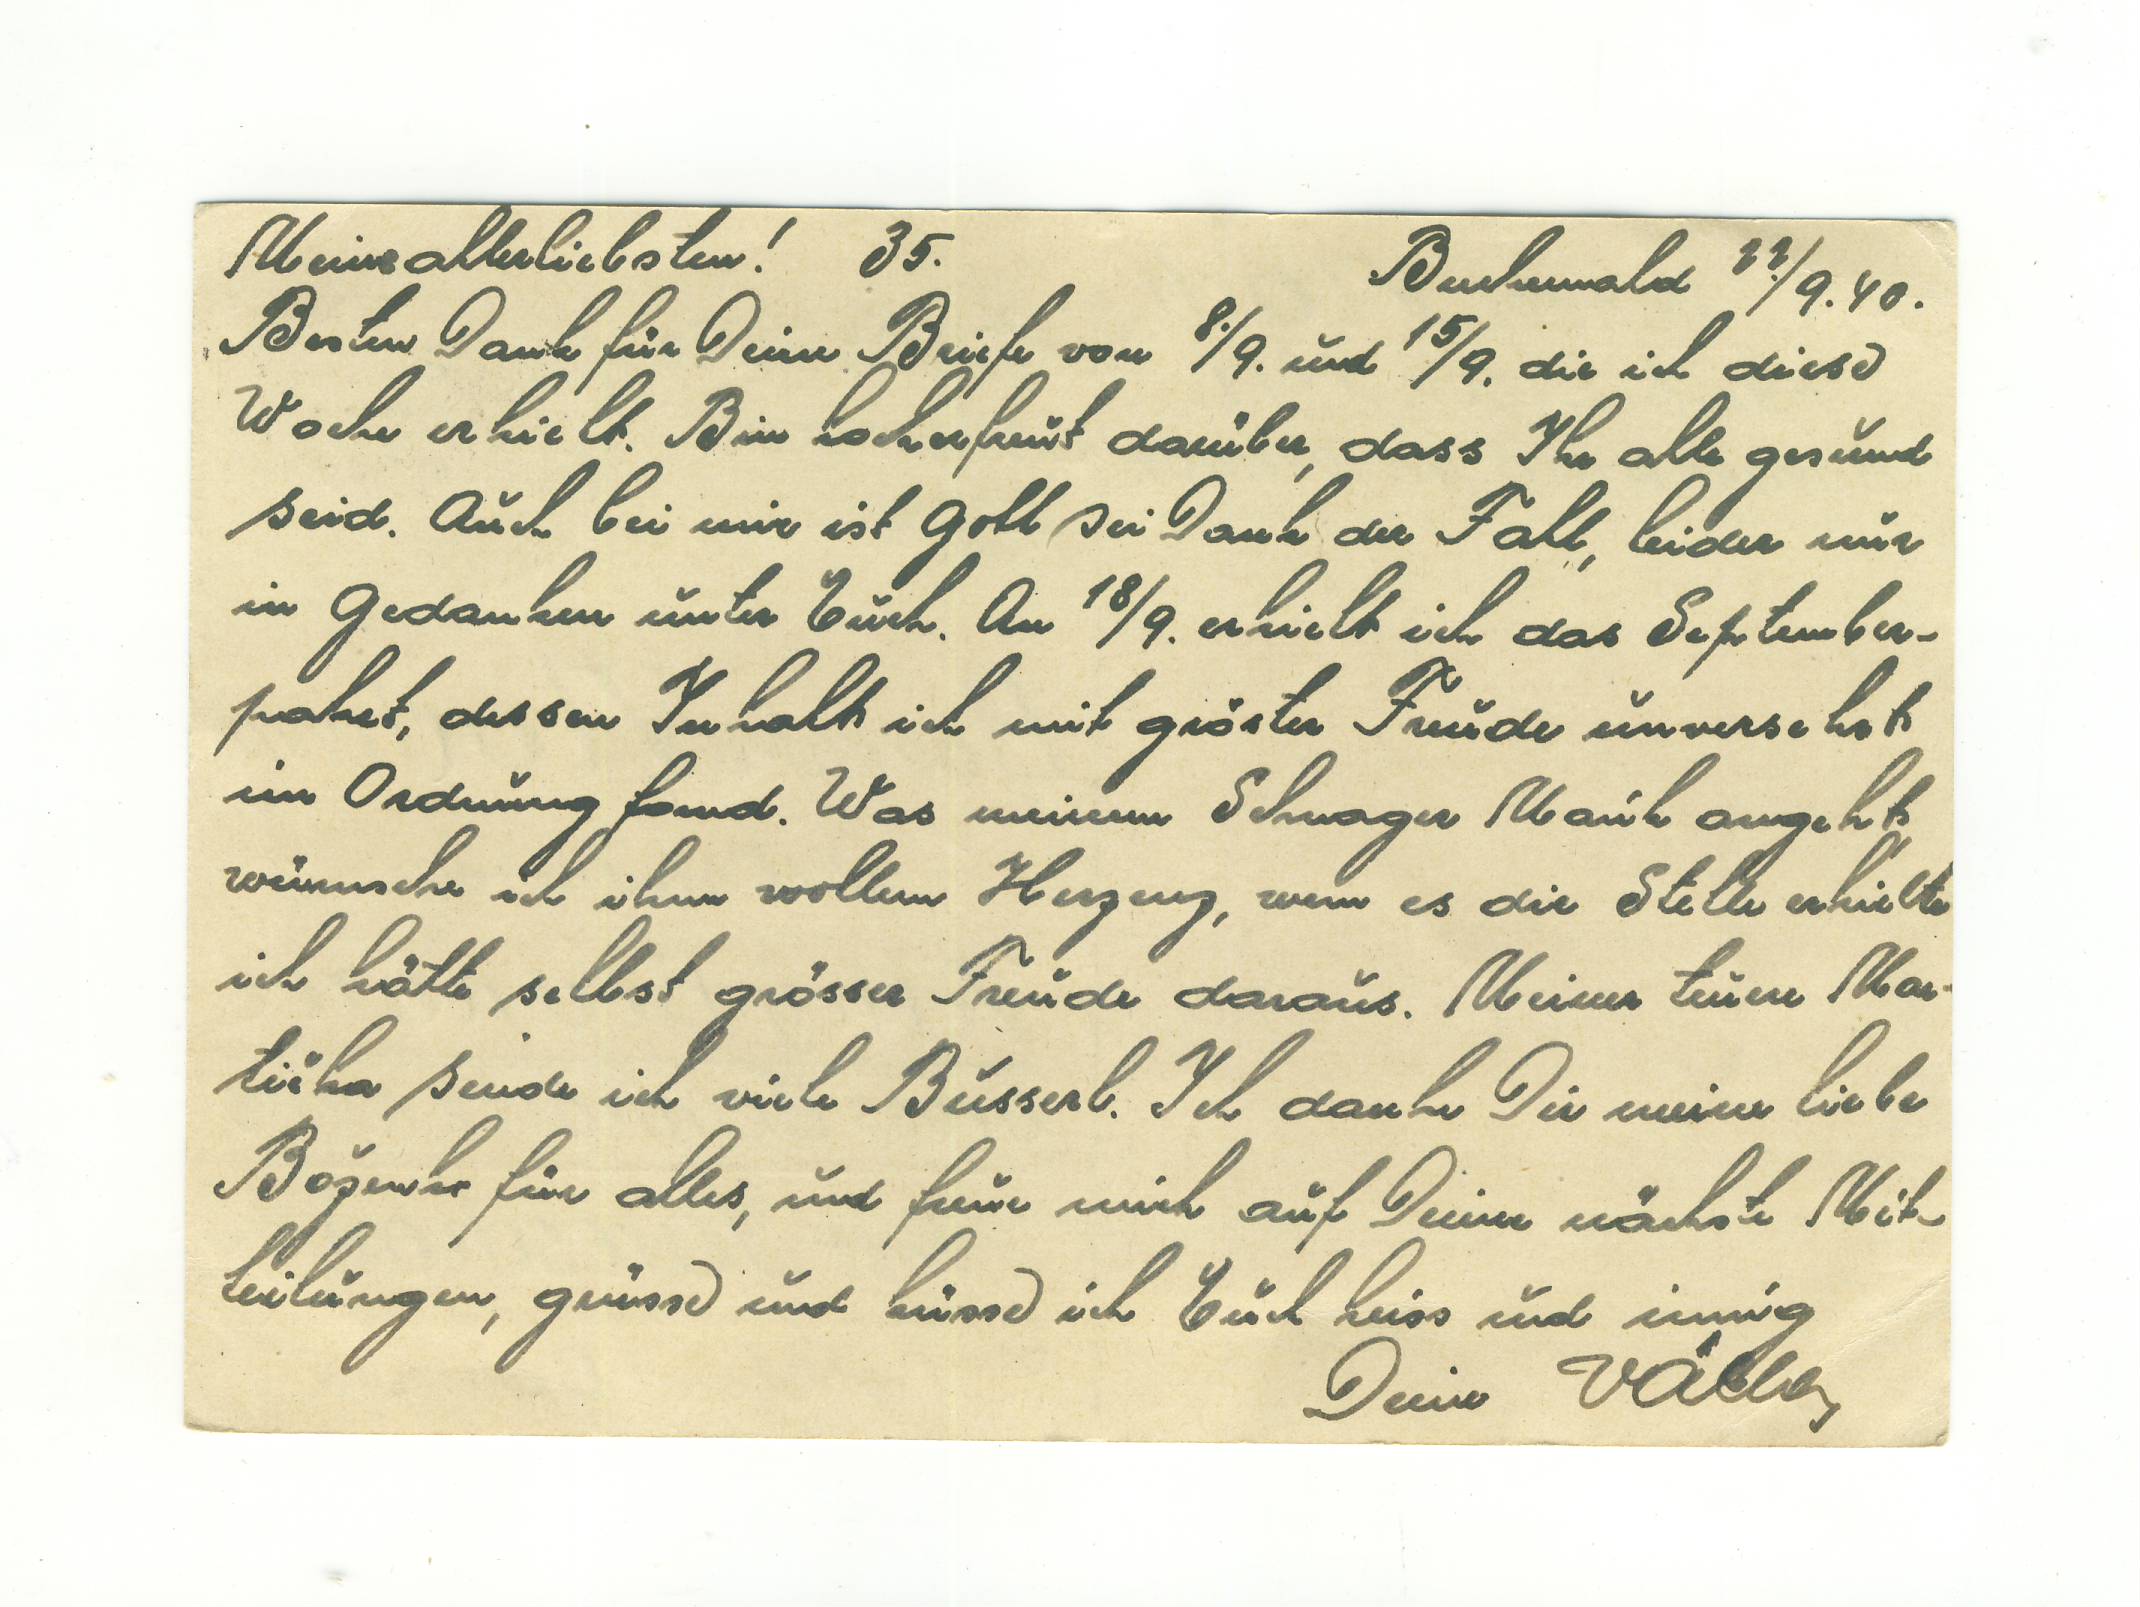 Meine allerliebsten! 35. Buchenwald 22./9.40.
Besten Dank für Deine Briefe von 8./9. und 15/9. die ich diese
Woche erhielt. Bin hocherfreut darüber, dass Ihr alle gesund
seid. Auch bei mir ist Gott sei Dank der Fall, leider nur
in Gedanken unter Euch. Am 18/9. erhielt ich das September-
paket, dessen Inhalt ich mit gröster Freude unversehrt
in Ordnung fand. Was meinem Schwager angeht,
wünsche ich ihm vollem wenn es die Stelle erhielte
ich hätte selbst grösser Freude daraus. Meiner teuere Mar-
sende ich viele Busserl. Ich danke Dir meine liebe
Boženko für alles, und freue mich auf Deine nächste Mit-
teilungen, grüsse und küsse ich Euch heiss und innig
Deine